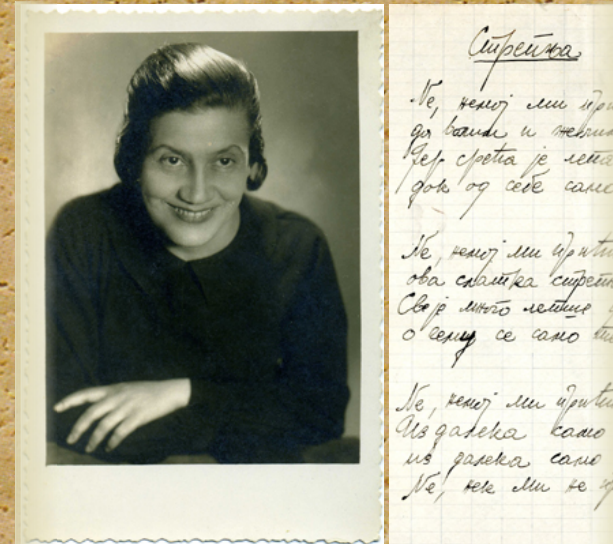 Стрепња
Не, немој ми при
да волим и
Јер срећа је лепа
док од себе само
Не, немој ми прићи
ова слатка стреп
Све је много лепше
о чему се само
Не, немој ми прићи
Из далека само
из далека само
Не, нек ми не